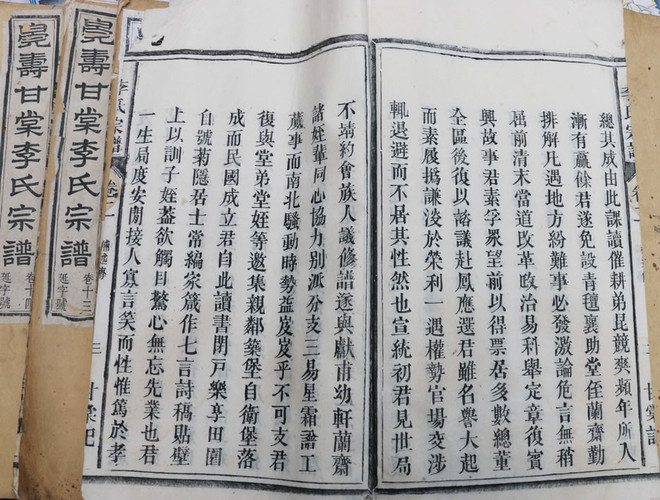 總其成由此課讀催耕弟昆競爽頻年所入
漸有贏餘君遂免設青氊襄助堂侄蘭齋勤
排解凡遇地方紛難事必發激論危言無稍
屈前清末當道改革政治易科舉定章復賓
興故事君素孚眾望前以得票居多數總董
全區後復以諮議赴鳳應選君雖名譽大起
而素履撝謙淡於榮利一遇權勢官場交涉
輒退避而不居其性然也宣統初君見世局
不靖約會族人議修譜遂與獻甫幼軒蘭齋
諸姪輩同心協力別派分支三易星霜譜工
蕆事而南北騷動時勢益岌岌乎不可支君
復與堂弟堂姪等邀集親鄰築堡自衛堡落
成而民國成立君自此讀書閉戶樂享田園
自號菊隱居士常編家箴作七言詩稿貼壁
上以訓子姪葢欲觸目驚心無忘先業也君
一生局度安閒接人寡言笑而性惟篤於孝
李氏宗譜 卷一 三 甘棠
壽甘棠李氏宗譜 卷十三 延字號
壽甘棠李氏宗譜 卷十四 延字號